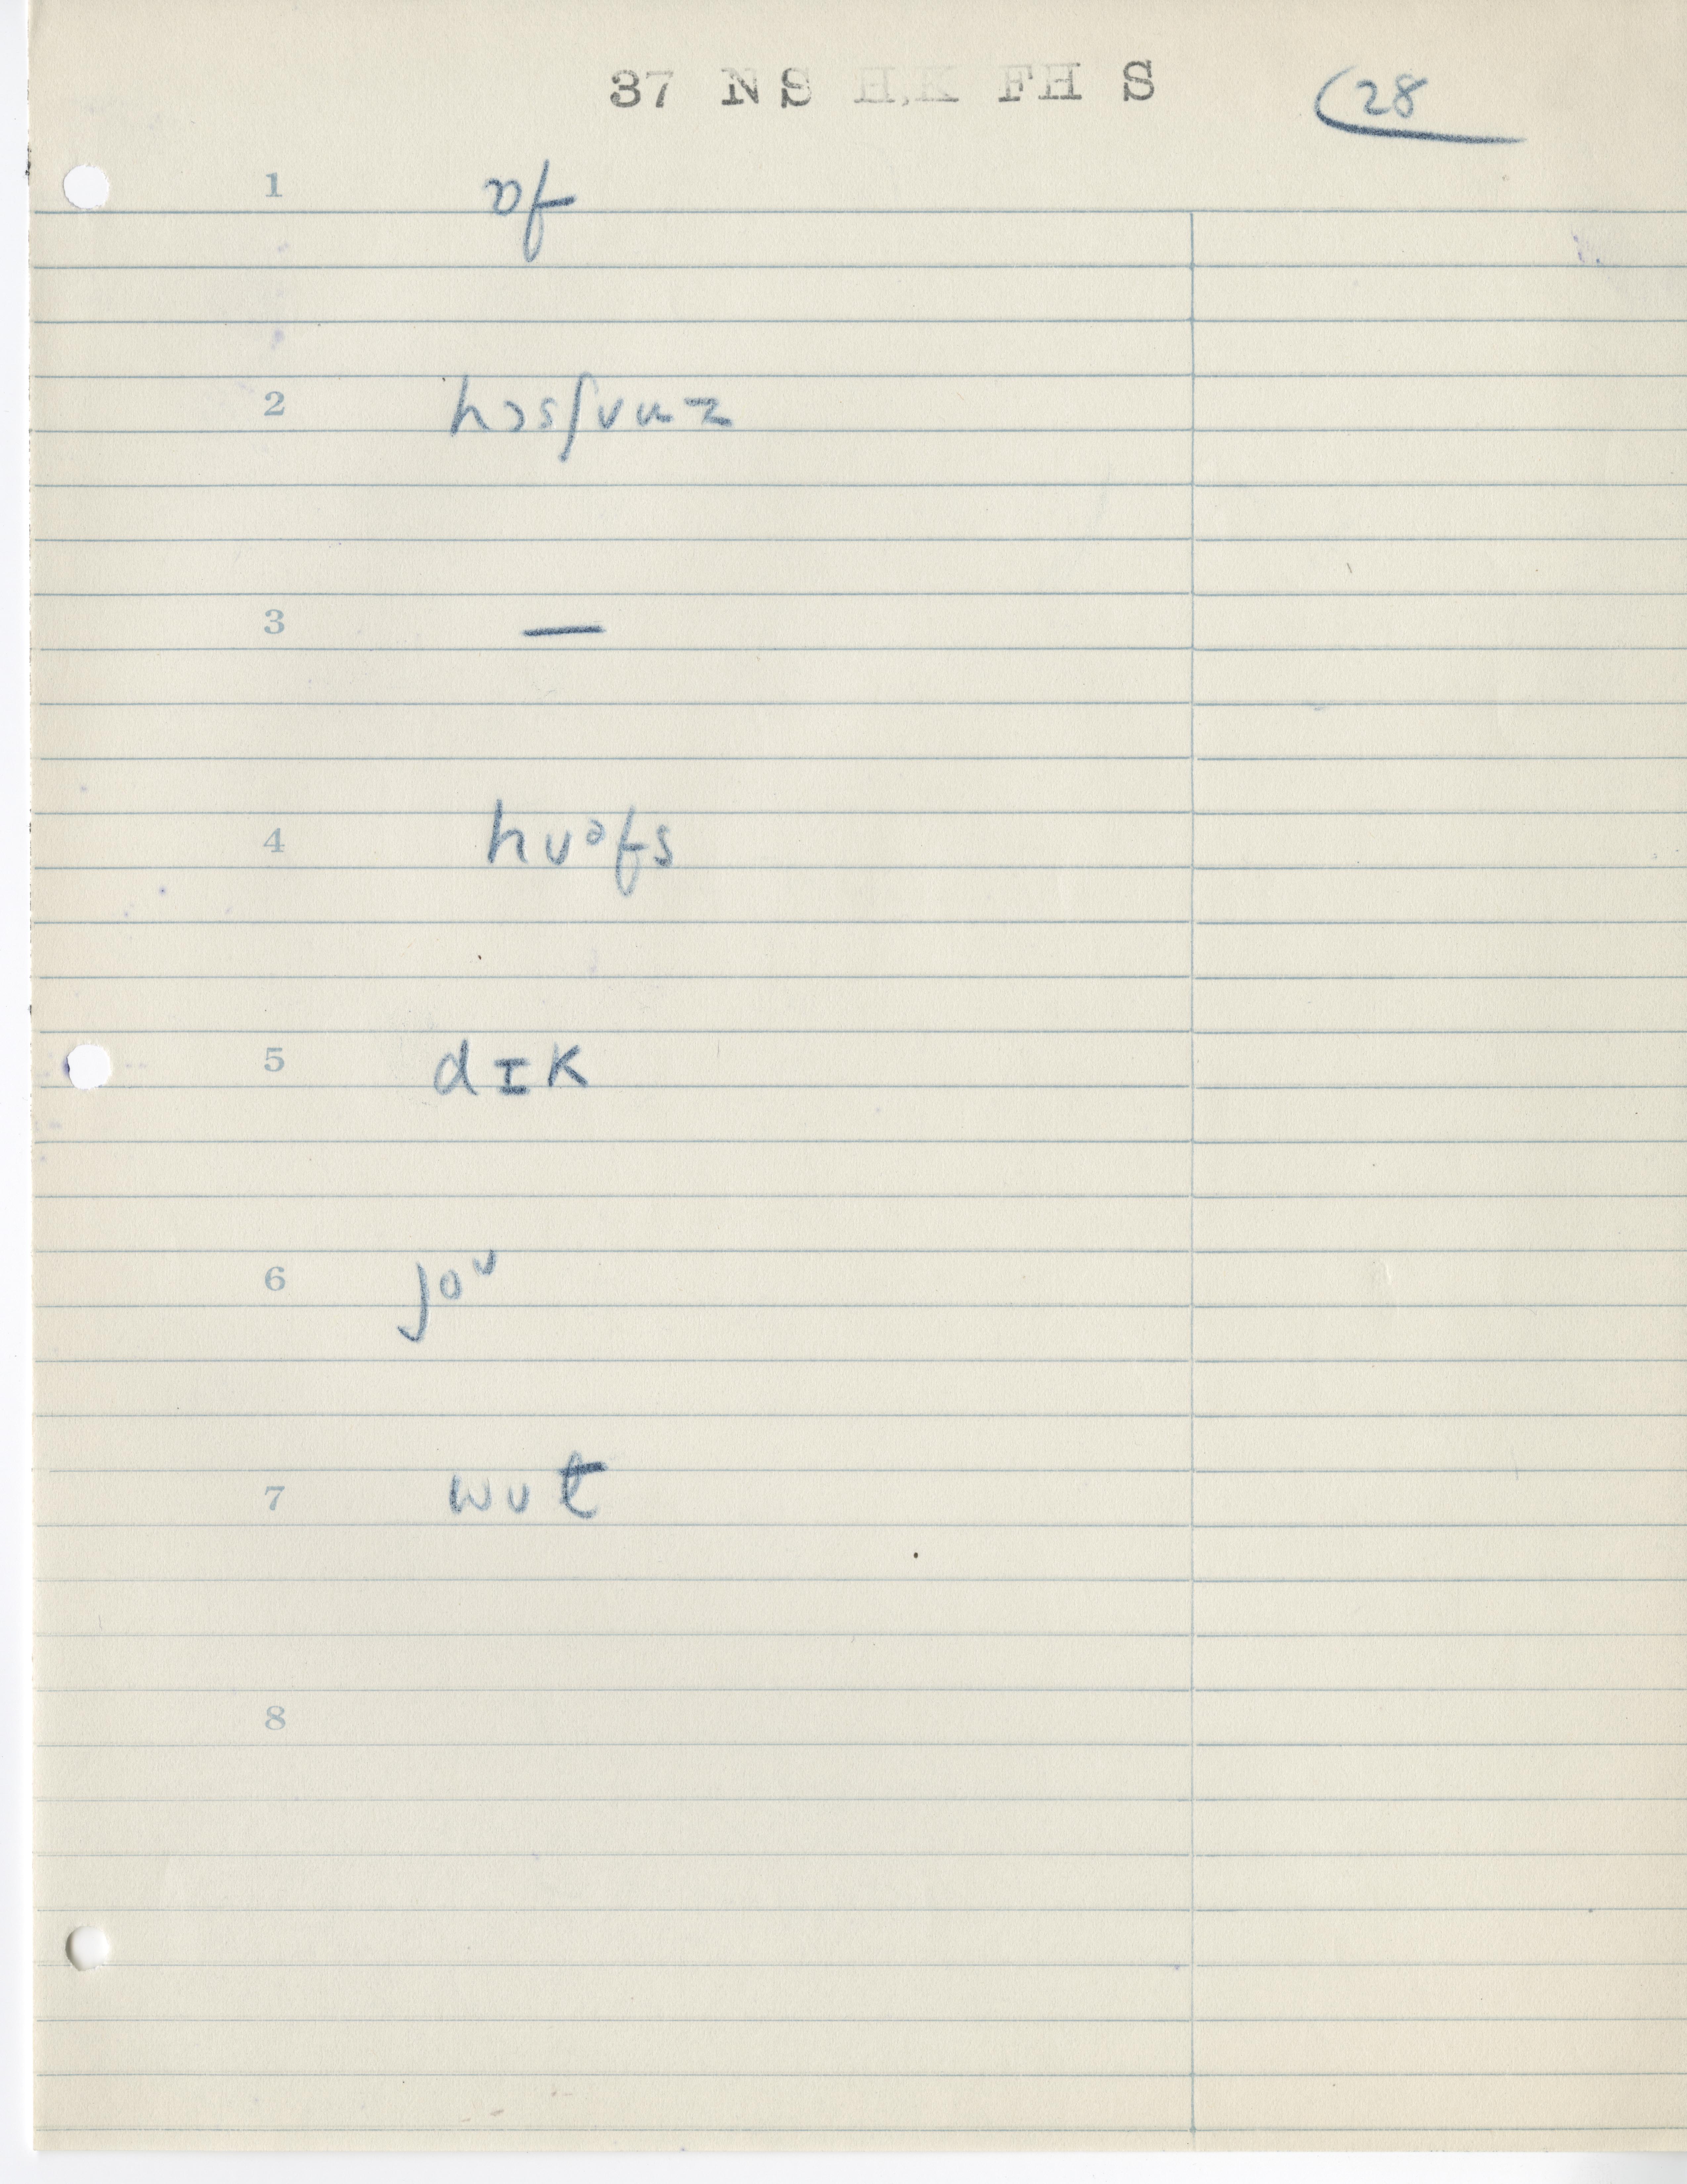 37 NS H.K FH S
28
1 ɒf
2 hɔsʃʊuz
3 —
4 hʊᵊfs
5 dɪk
6 joᶷ
7 wʊt
8